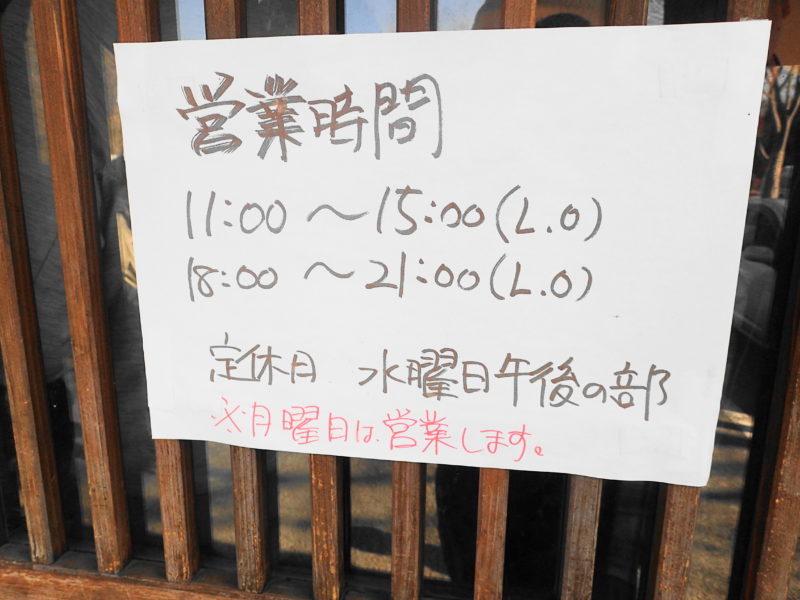 営業時間
11:00 〜 15:00(L.O)
18:00 〜 21:00(L.O)
定休日 水曜日午後の部
※月曜日は営業します。